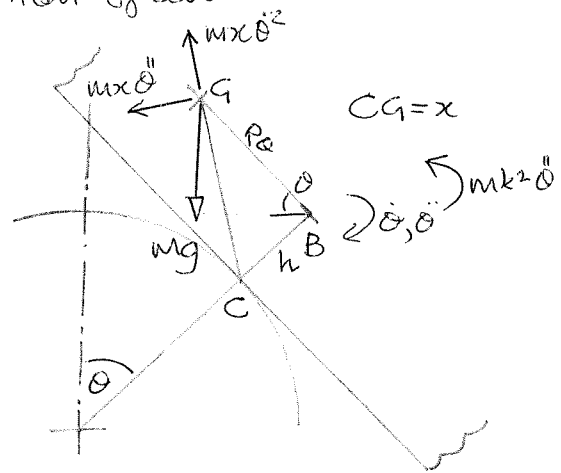 mxθ̈²
mxθ̈ G
CG=x
Rθ
θ
mk²θ̈
θ̇,θ̈
mg
h B
C
θ